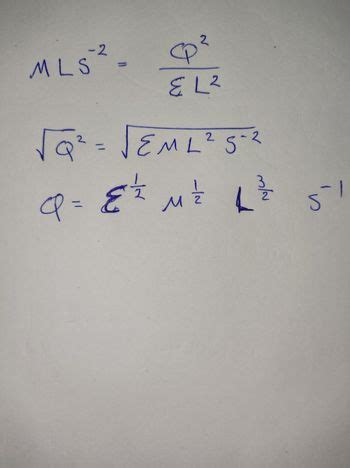 MLS⁻² = Q² / ƐL²
√Q² = √ƐML²S⁻²
Q = Ɛ^½ M^½ L^(3/2) S⁻¹